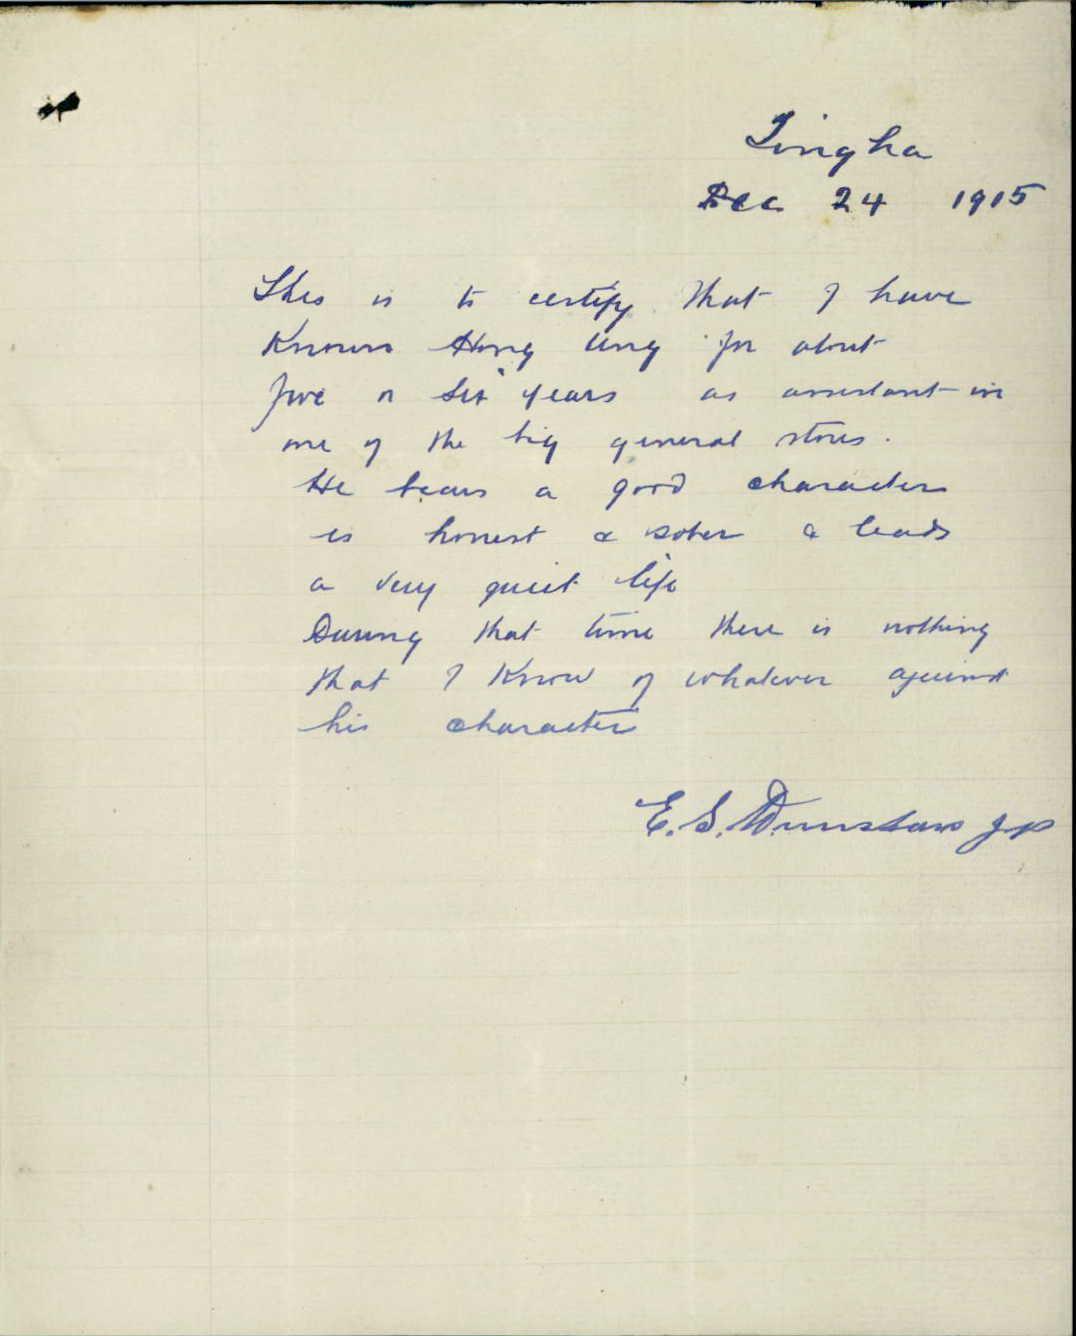 Tingha
Dec 24 1915
This is to certify that I have
Known Hong Ung for about
five or six years as assistant in
one of the big general stores.
He bears a good character
is honest & sober & leads
a very quiet life
During that time there is nothing
that I Know of whatever against
his character
E. S. Dunstan JP